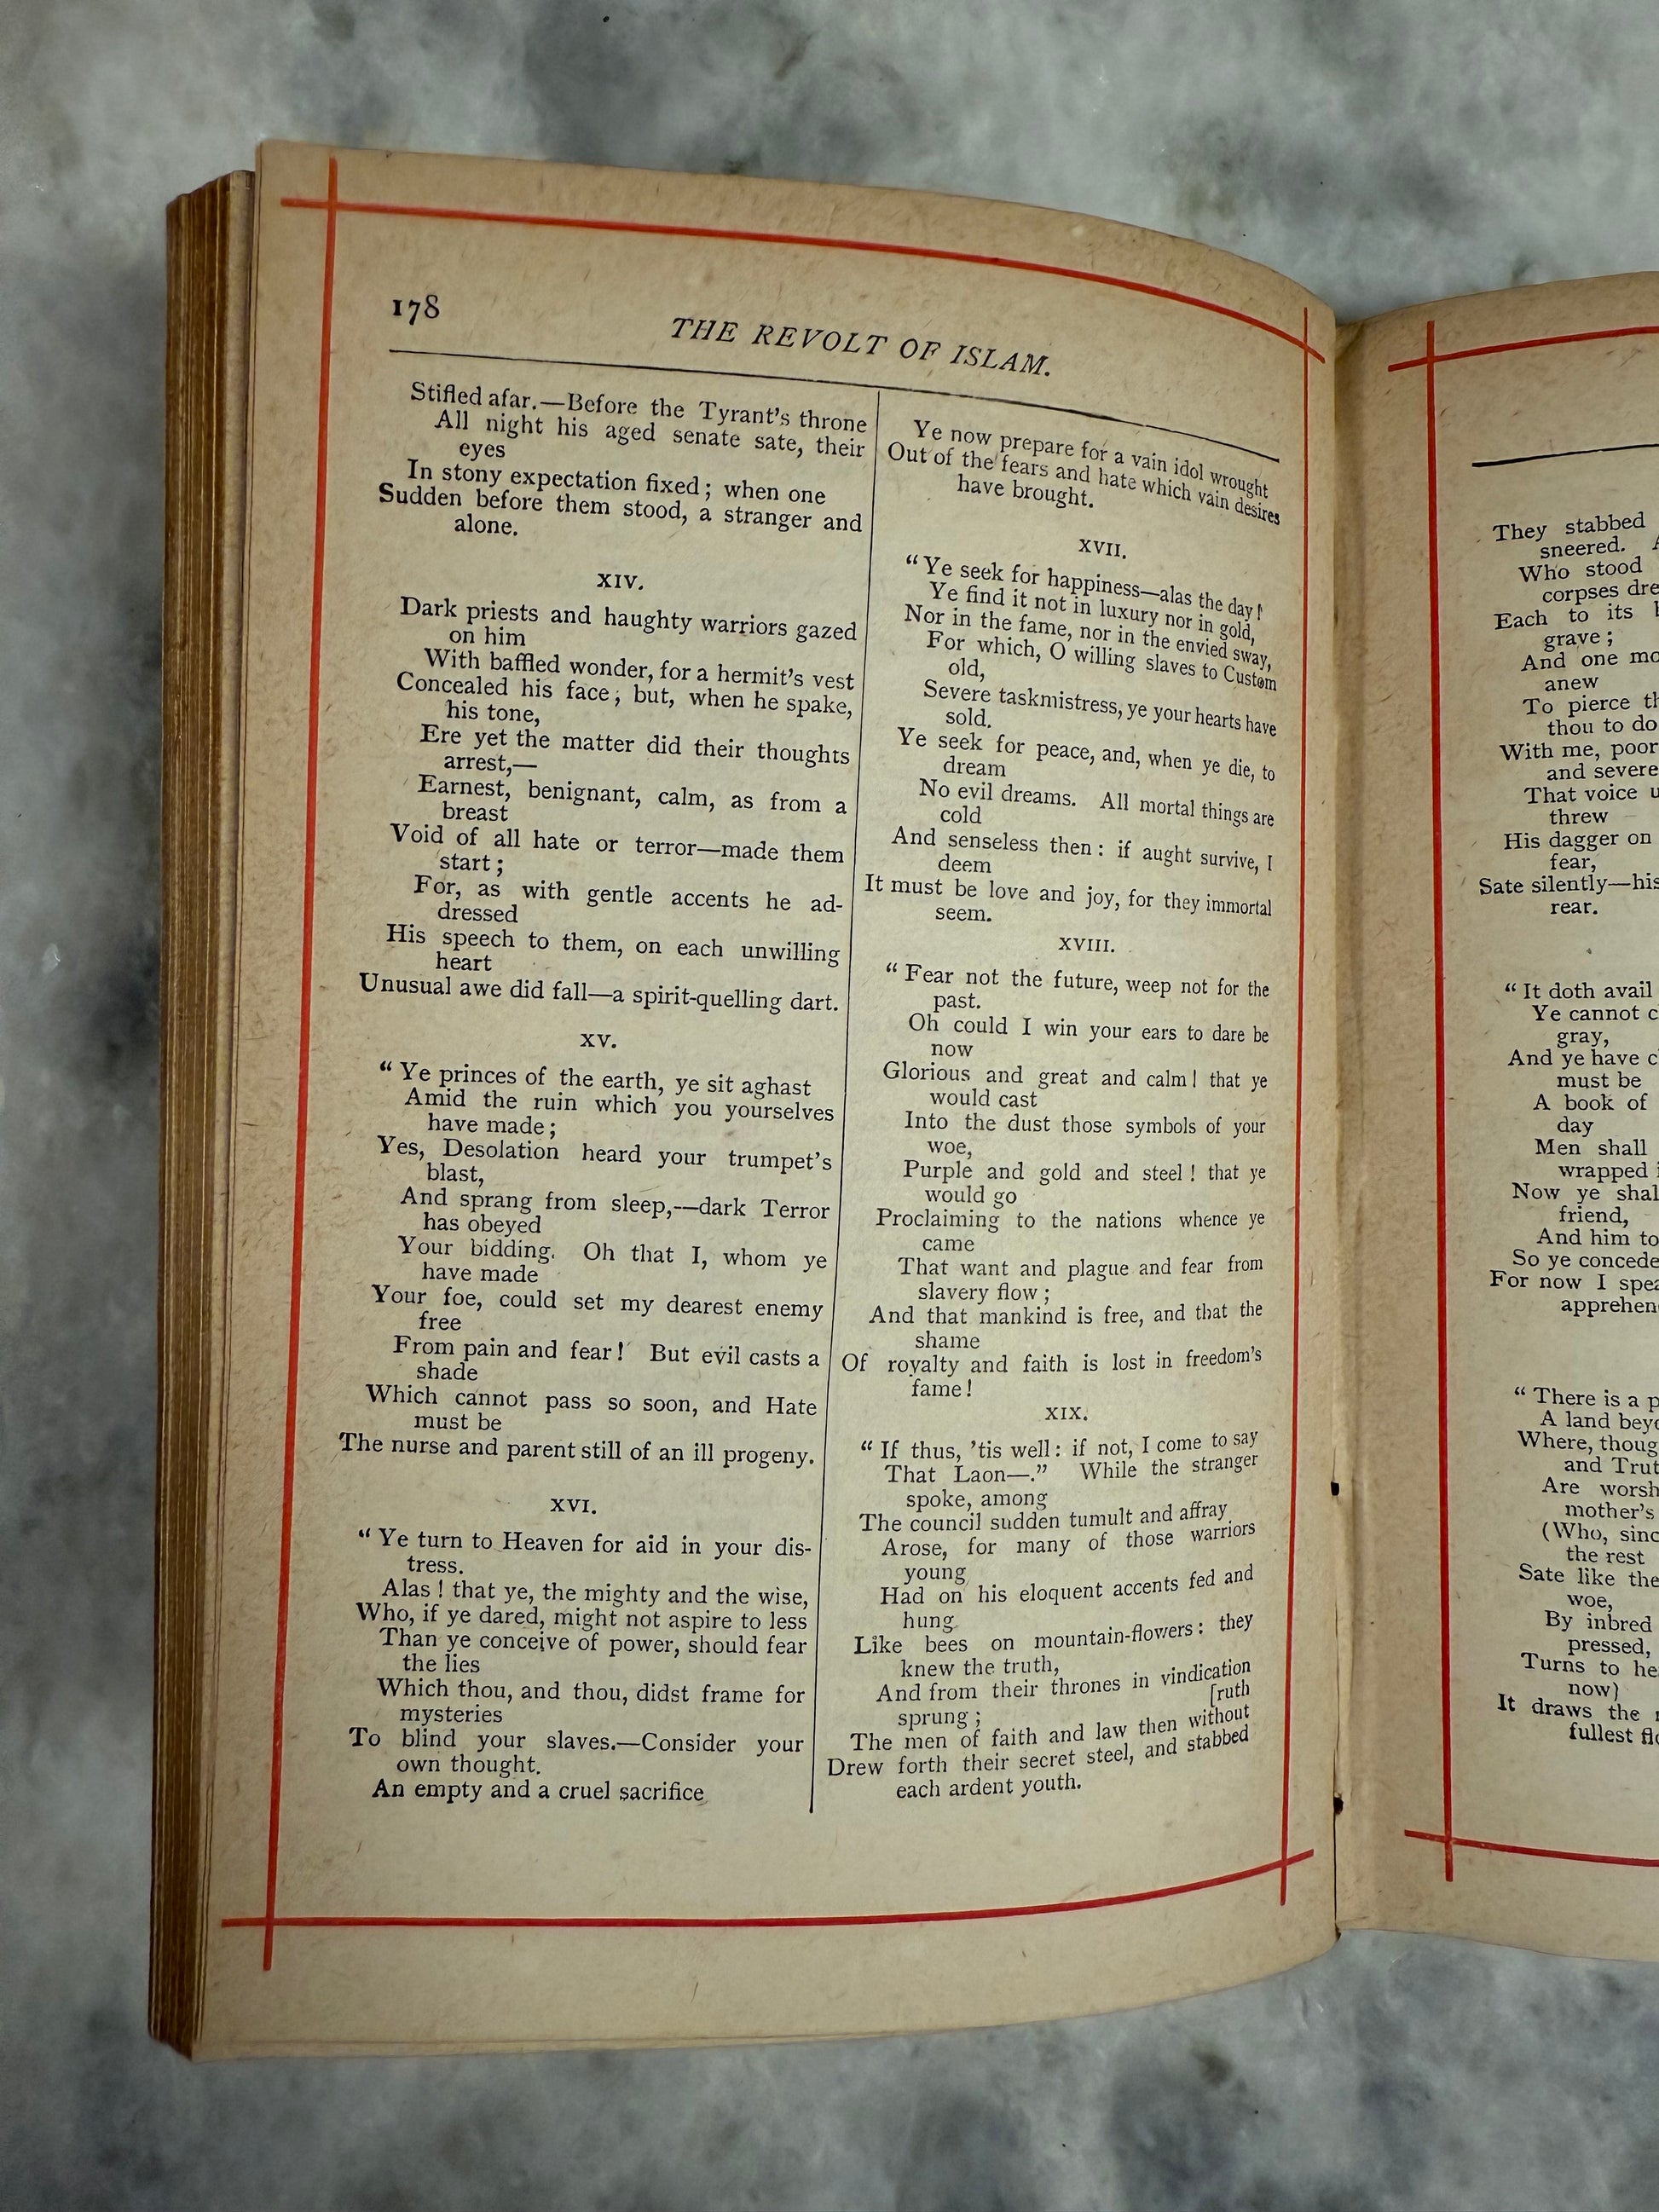 178
THE REVOLT OF ISLAM.
Stifled afar.—Before the Tyrant's throne
All night his aged senate sate, their
eyes
In stony expectation fixed; when one
Sudden before them stood, a stranger and
alone.
XIV.
Dark priests and haughty warriors gazed
on him
With baffled wonder, for a hermit's vest
Concealed his face; but, when he spake,
his tone,
Ere yet the matter did their thoughts
arrest,—
Earnest, benignant, calm, as from a
breast
Void of all hate or terror—made them
start;
For, as with gentle accents he ad-
dressed
His speech to them, on each unwilling
heart
Unusual awe did fall—a spirit-quelling dart.
XV.
“Ye princes of the earth, ye sit aghast
Amid the ruin which you yourselves
have made;
Yes, Desolation heard your trumpet's
blast,
And sprang from sleep,—dark Terror
has obeyed
Your bidding. Oh that I, whom ye
have made
Your foe, could set my dearest enemy
free
From pain and fear! But evil casts a
shade
Which cannot pass so soon, and Hate
must be
The nurse and parent still of an ill progeny.
XVI.
“Ye turn to Heaven for aid in your dis-
tress.
Alas! that ye, the mighty and the wise,
Who, if ye dared, might not aspire to less
Than ye conceive of power, should fear
the lies
Which thou, and thou, didst frame for
mysteries
To blind your slaves.—Consider your
own thought.
An empty and a cruel sacrifice
Ye now prepare for a vain idol wrought
Out of the fears and hate which vain desires
have brought.
XVII.
“Ye seek for happiness—alas the day!
Ye find it not in luxury nor in gold,
Nor in the fame, nor in the envied sway,
For which, O willing slaves to Custom
old,
Severe taskmistress, ye your hearts have
sold.
Ye seek for peace, and, when ye die, to
dream
No evil dreams. All mortal things are
cold
And senseless then: if aught survive, I
deem
It must be love and joy, for they immortal
seem.
XVIII.
“Fear not the future, weep not for the
past.
Oh could I win your ears to dare be
now
Glorious and great and calm! that ye
would cast
Into the dust those symbols of your
woe,
Purple and gold and steel! that ye
would go
Proclaiming to the nations whence ye
came
That want and plague and fear from
slavery flow;
And that mankind is free, and that the
shame
Of royalty and faith is lost in freedom's
fame!
XIX.
“If thus, 'tis well: if not, I come to say
That Laon—.” While the stranger
spoke, among
The council sudden tumult and affray
Arose, for many of those warriors
young
Had on his eloquent accents fed and
hung
Like bees on mountain-flowers: they
knew the truth,
And from their thrones in vindication
sprung;
[ruth
The men of faith and law then without
Drew forth their secret steel, and stabbed
each ardent youth.
They stabbed
sneered.
Who stood
corpses
Each to its
grave;
And one
anew
To pierce
thou to do
With me, poor
and severe
That voice
threw
His dagger on
fear,
Sate silently—his
rear.
“It doth avail
Ye cannot
gray,
And ye have
must be
A book of
day
Men shall
wrapped
Now ye
friend,
And him to
So ye concede
For now I
“There is a
A land
Where,
and
Are
mother's
(Who,
the rest
Sate like the
woe,
By inbred
pressed,
Turns to
now)
It draws the
fullest